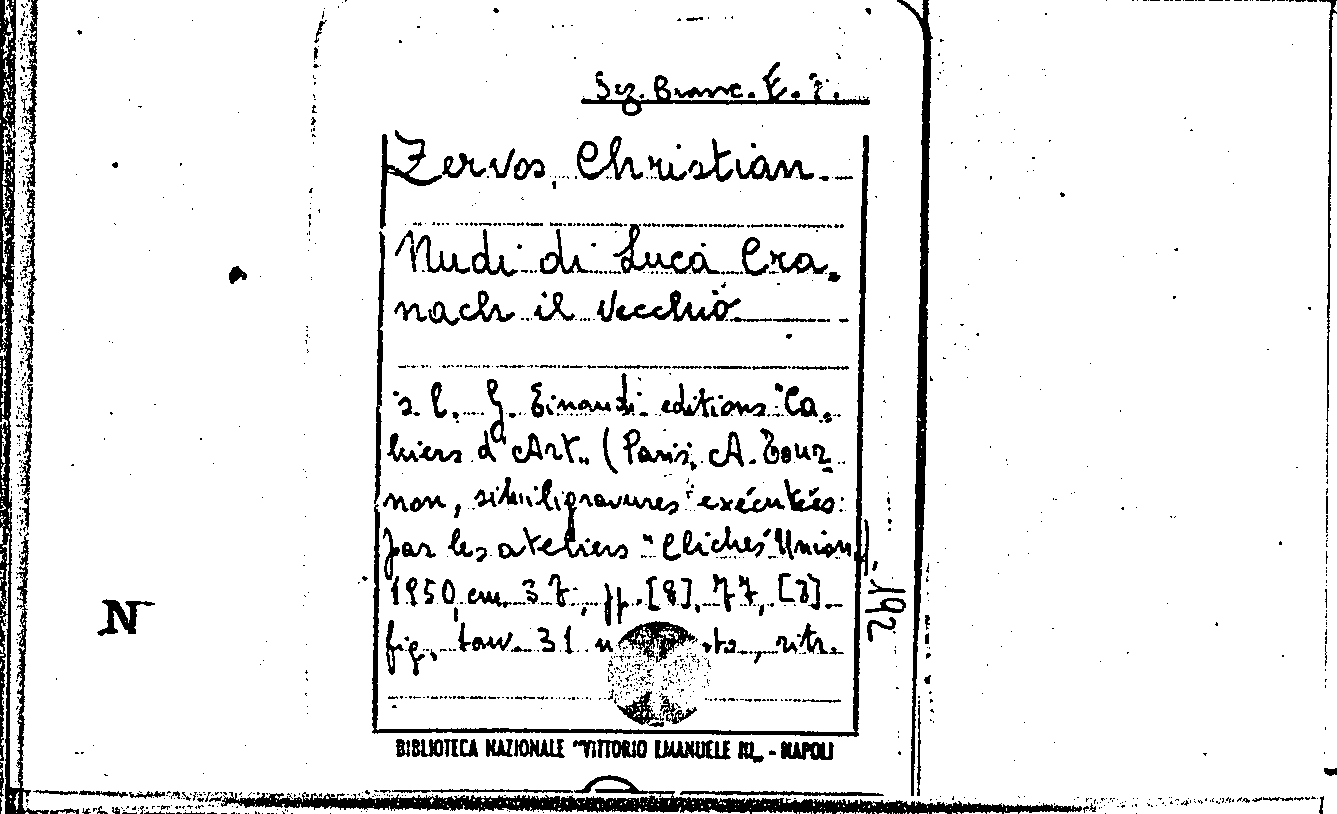 Sez. Branc. E. 7.
Zervos, Christian.
Nudi di Luca Cra-
nach il Vecchio
s. l. G. Einaudi editions "Ca-
hiers d'Art„ (Paris, A. Tour-
non, similigravures exécutées
par les ateliers "Clichés Union„)
1950, cm. 37, pp. [8], 77, [3]
fig., tav. 31 ritr.
192
N
BIBLIOTECA NAZIONALE "VITTORIO EMANUELE III„ - NAPOLI